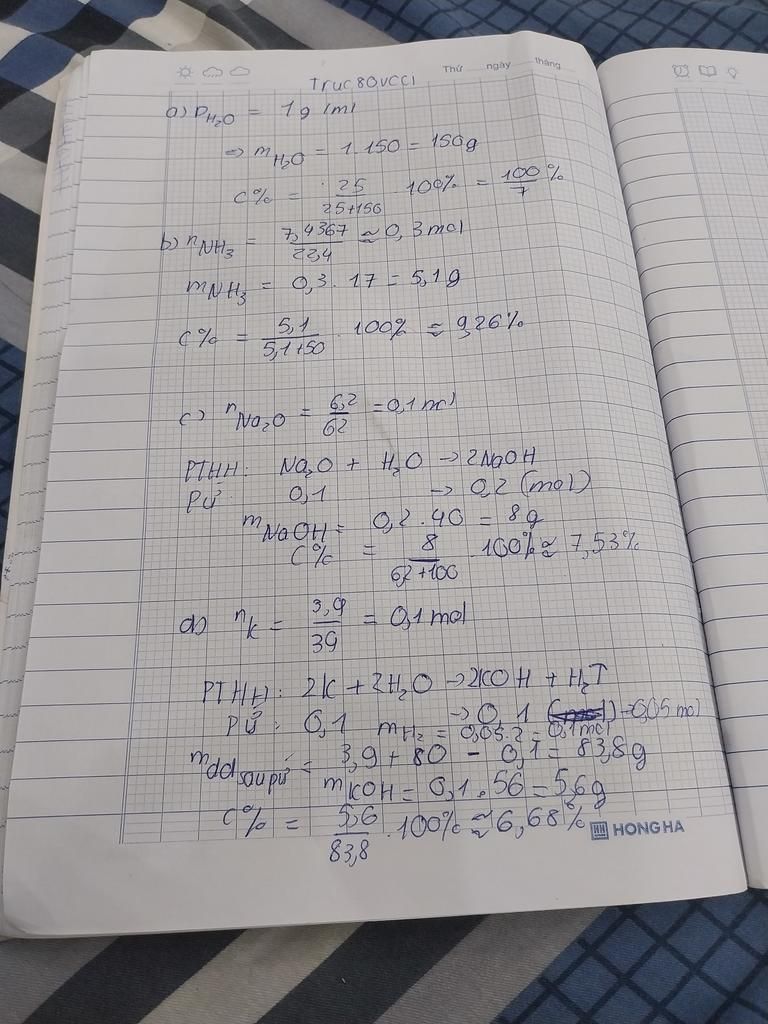 Thứ......ngày......tháng......
Truc80VCC1
a) D_H₂O = 1g/ml
⇒ m_H₂O = 1.150 = 150g
C% = 25/(25+150) . 100% = 100/7 %
b) n_NH₃ = 7,4367/22,4 ≈ 0,3 mol
m_NH₃ = 0,3 . 17 = 5,1g
C% = 5,1/(5,1+50) . 100% ≈ 9,26%
c) n_Na₂O = 6,2/62 = 0,1 ml
PTHH: Na₂O + H₂O → 2NaOH
PƯ: 0,1 → 0,2 (mol)
m_NaOH = 0,2.40 = 8g
C% = 8/(6,2+100) . 100% ≈ 7,53%
d) n_K = 3,9/39 = 0,1 mol
PTHH: 2K + 2H₂O → 2KOH + H₂↑
PƯ: 0,1 → 0,1 → 0,05 mol
m_H₂ = 0,05.2 = 0,1 mol
m_dd sau pứ = 3,9 + 80 - 0,1 = 83,8g
m_KOH = 0,1.56 = 5,6g
C% = 5,6/83,8 . 100% ≈ 6,68%
HONG HA